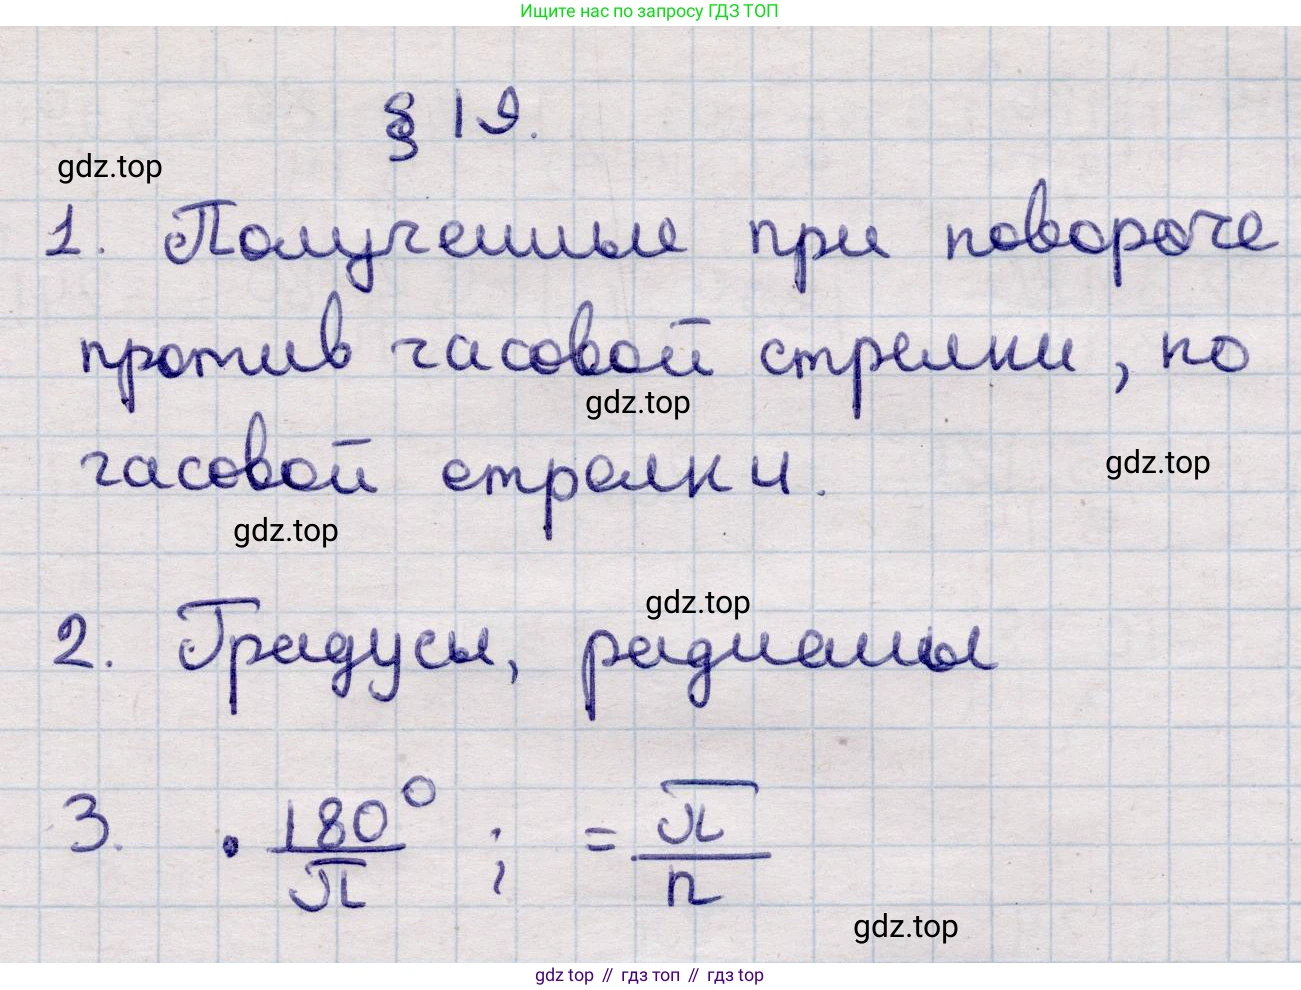 Ищите нас по запросу ГДЗ ТОП
§ 19.
gdz.top
1. Полученные при повороте
против часовой стрелки, по
gdz.top
часовой стрелки.
gdz.top
gdz.top
gdz.top
2. Градусы, радианы
3. · 180°/π ; = π/n
gdz.top
gdz top // гдз топ // гдз top